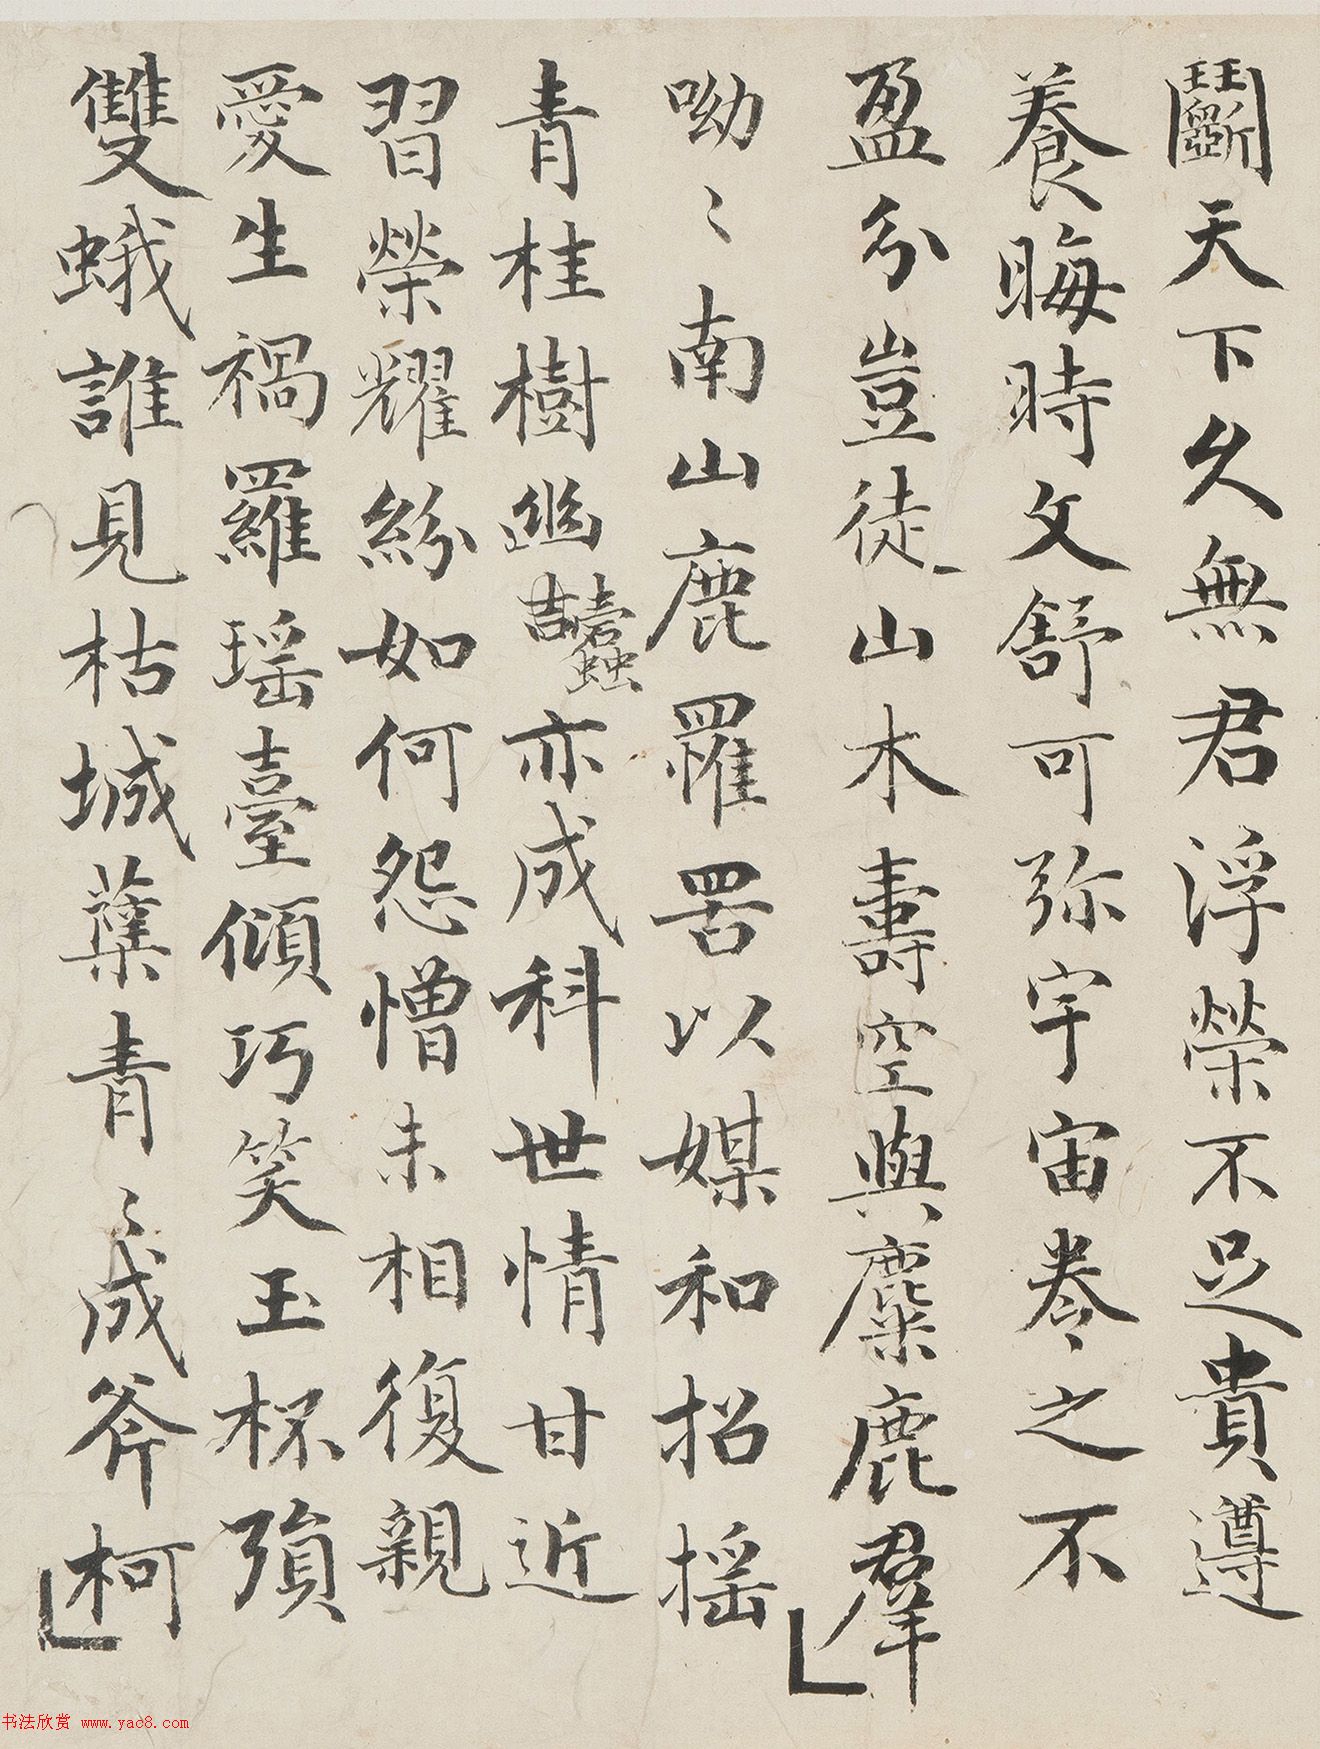 鬭天下久無君浮榮不足貴遵
養晦時文舒可弥宇宙卷之不
盈分豈徒山木壽空與麋鹿羣
呦〻南山鹿罹罟以媒和招摇
青桂樹幽蠹亦成科世情甘近
習榮耀紛如何怨憎未相復親
愛生禍羅瑶臺傾巧笑玉杯殞
雙蛾誰見枯城蘖青〻成斧柯
书法欣赏 www.yac8.com